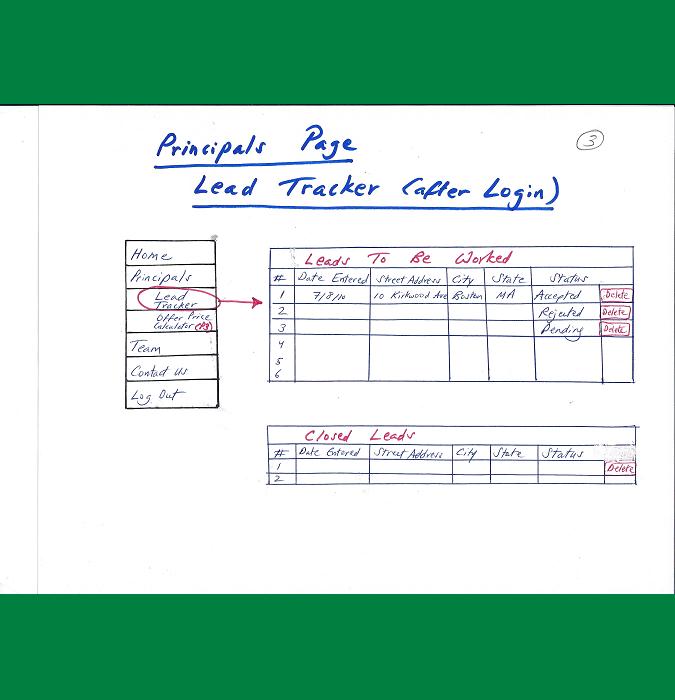 Principals Page
3
Lead Tracker (after Login)
Home
Principals
Lead
Tracker
Offer Price
Calculator (P3)
Team
Contact us
Log Out
Leads To Be Worked
# Date Entered Street Address City State Status
1 7/8/10 10 Kirkwood Ave Boston MA Accepted Delete
2 Rejected Delete
3 Pending Delete
4
5
6
Closed Leads
# Date Entered Street Address City State Status
1 Delete
2